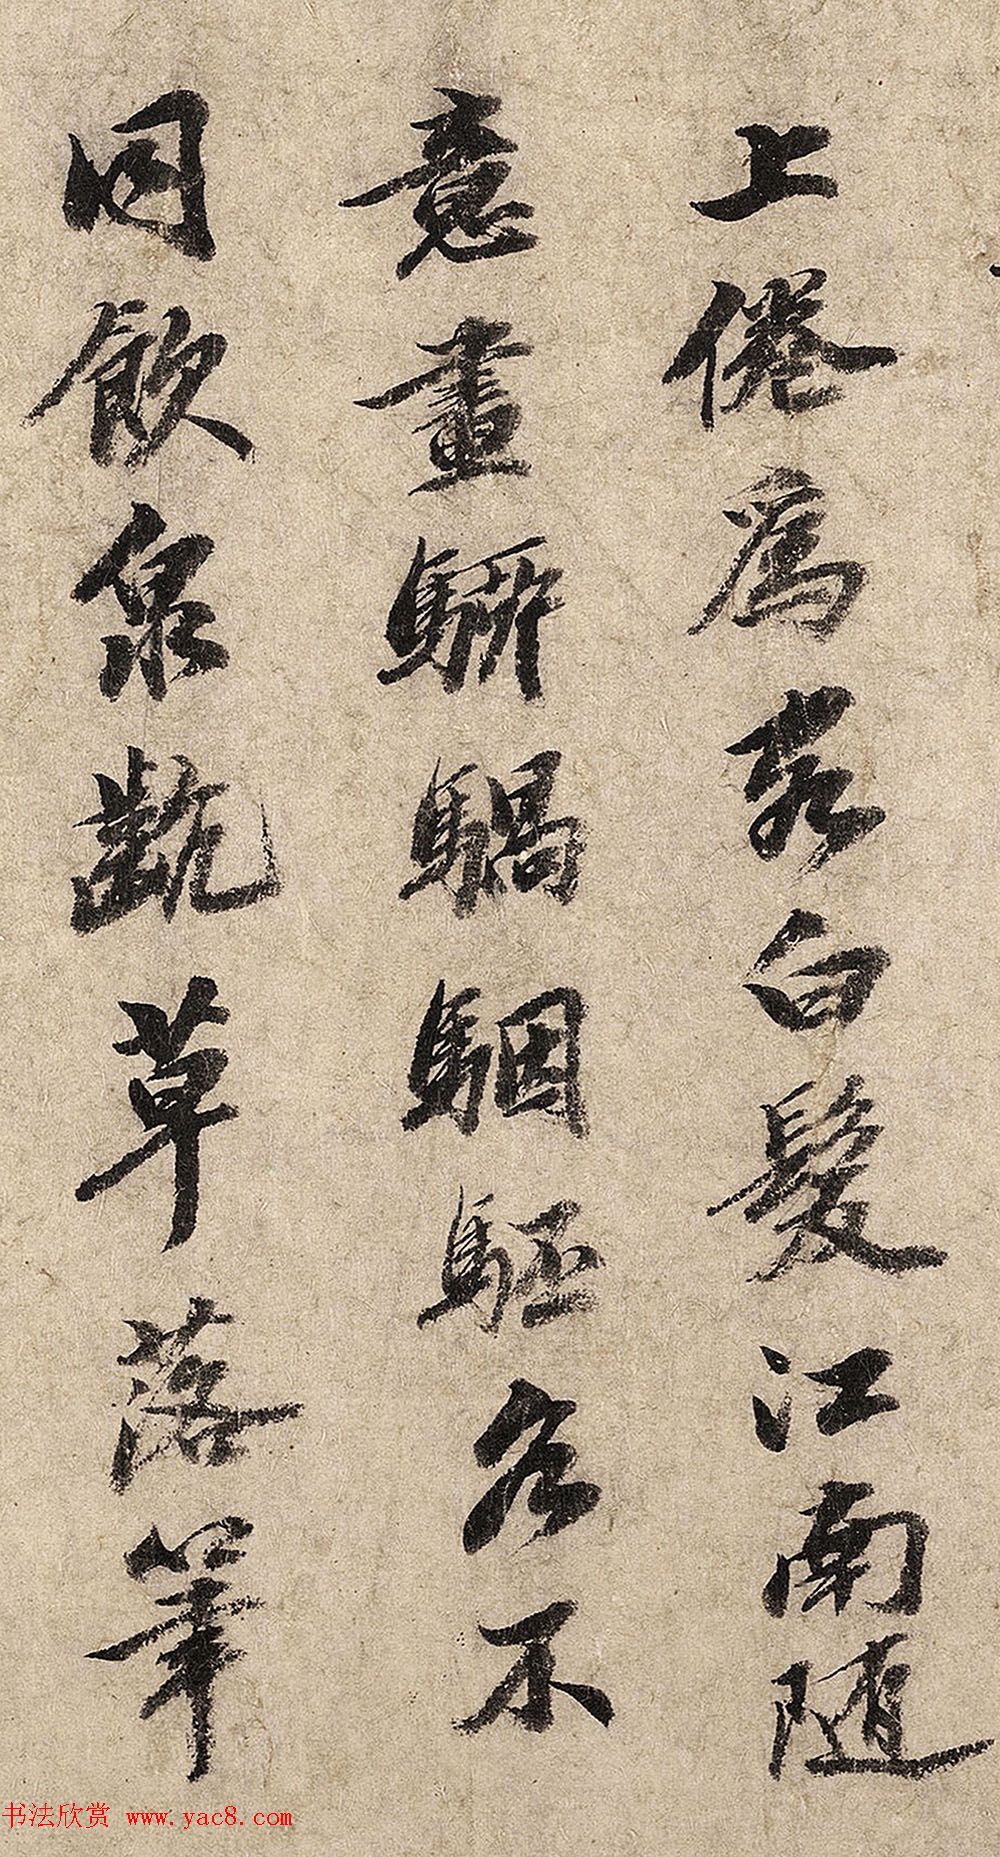 上倦爲客白髮江南隨
意畫騧駰駓各不
同飲泉齕草落筆
书法欣赏 www.yac8.com